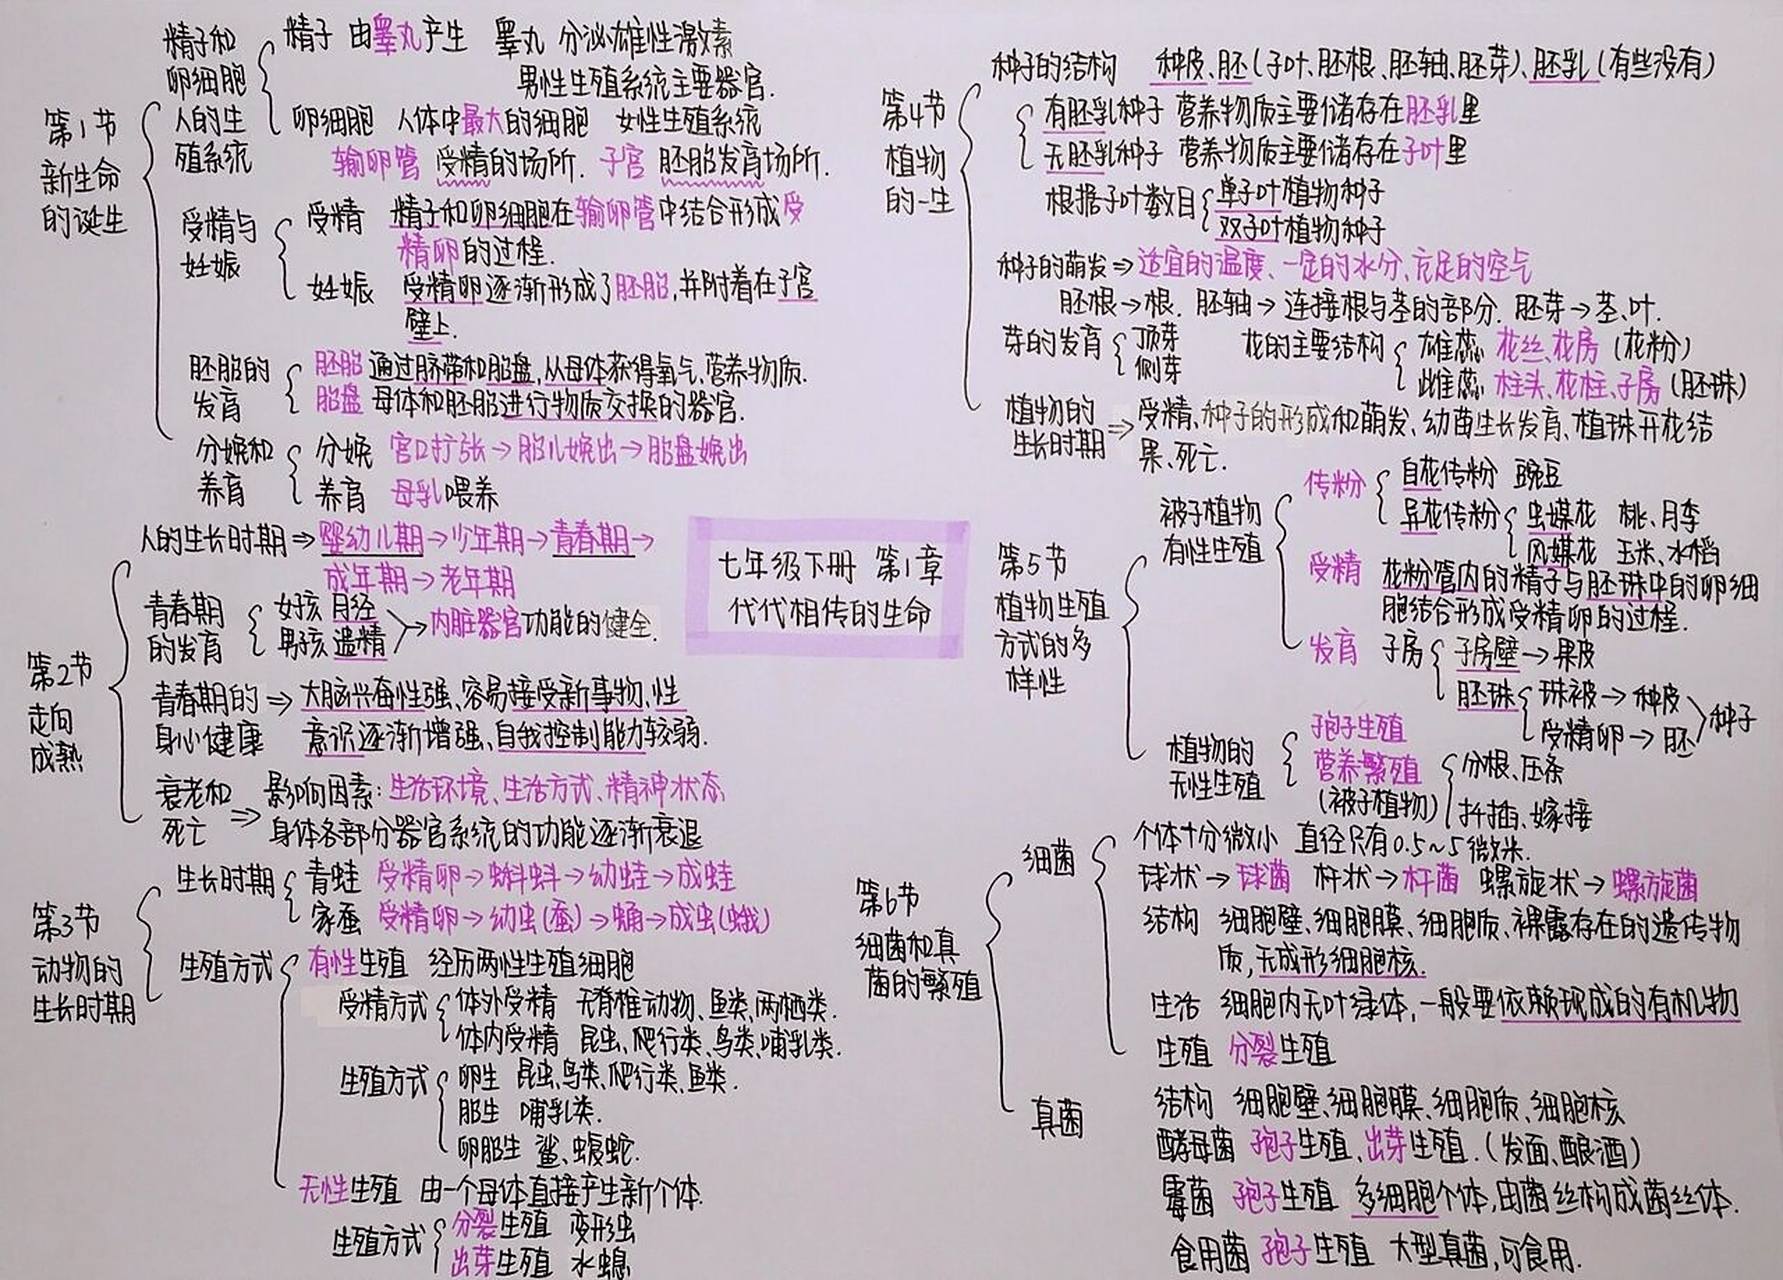 七年级下册 第1章
代代相传的生命
第1节
新生命
的诞生
精子和
卵细胞
人的生
殖系统
精子 由睾丸产生 睾丸 分泌雄性激素
男性生殖系统主要器官.
卵细胞 人体中最大的细胞 女性生殖系统
输卵管 受精的场所. 子宫 胚胎发育场所.
受精与
妊娠
受精 精子和卵细胞在输卵管中结合形成受
精卵的过程.
妊娠 受精卵逐渐形成了胚胎,并附着在子宫
壁上.
胚胎的
发育
胚胎通过脐带和胎盘,从母体获得氧气、营养物质.
胎盘 母体和胚胎进行物质交换的器官.
分娩和
养育
分娩 宫口扩张→胎儿娩出→胎盘娩出
养育 母乳喂养
第2节
走向
成熟
人的生长时期⇒婴幼儿期→少年期→青春期→
成年期→老年期
青春期
的发育
女孩 月经
男孩 遗精
→内脏器官功能的健全.
青春期的
身心健康
⇒大脑兴奋性强、容易接受新事物、性
意识逐渐增强、自我控制能力较弱.
衰老和
死亡
⇒影响因素:生活环境、生活方式、精神状态
身体各部分器官系统的功能逐渐衰退
第3节
动物的
生长时期
生长时期
青蛙 受精卵→蝌蚪→幼蛙→成蛙
家蚕 受精卵→幼虫(蚕)→蛹→成虫(蛾)
生殖方式
有性生殖 经历两性生殖细胞
受精方式
体外受精 无脊椎动物、鱼类、两栖类.
体内受精 昆虫、爬行类、鸟类、哺乳类.
生殖方式
卵生 昆虫、鸟类、爬行类、鱼类.
胎生 哺乳类.
卵胎生 鲨、蝮蛇.
无性生殖 由一个母体直接产生新个体.
生殖方式
分裂生殖 变形虫
出芽生殖 水螅
第4节
植物
的一生
种子的结构 种皮、胚(子叶、胚根、胚轴、胚芽)、胚乳(有些没有)
有胚乳种子 营养物质主要储存在胚乳里
无胚乳种子 营养物质主要储存在子叶里
根据子叶数目
单子叶植物种子
双子叶植物种子
种子的萌发⇒适宜的温度、一定的水分、充足的空气
胚根→根. 胚轴→连接根与茎的部分. 胚芽→茎、叶.
芽的发育
顶芽
侧芽
花的主要结构
雄蕊 花丝、花房(花粉)
雌蕊 柱头、花柱、子房(胚珠)
植物的
生长时期
⇒受精、种子的形成和萌发、幼苗生长发育、植珠开花结
果、死亡.
第5节
植物生殖
方式的多
样性
被子植物
有性生殖
传粉
自花传粉 豌豆
异花传粉
虫媒花 桃、月季
风媒花 玉米、水稻
受精 花粉管内的精子与胚珠中的卵细
胞结合形成受精卵的过程.
发育 子房
子房壁→果皮
胚珠
珠被→种皮
受精卵→胚
种子
植物的
无性生殖
孢子生殖
营养繁殖
(被子植物)
分根、压条
扦插、嫁接
第6节
细菌和真
菌的繁殖
细菌
个体十分微小 直径只有0.5~5微米.
球状→球菌 杆状→杆菌 螺旋状→螺旋菌
结构 细胞壁、细胞膜、细胞质、裸露存在的遗传物
质,无成形细胞核.
生活 细胞内无叶绿体,一般要依赖现成的有机物
生殖 分裂生殖
真菌
结构 细胞壁、细胞膜、细胞质、细胞核
酵母菌 孢子生殖、出芽生殖.(发面、酿酒)
霉菌 孢子生殖 多细胞个体,由菌丝构成菌丝体.
食用菌 孢子生殖 大型真菌,可食用.